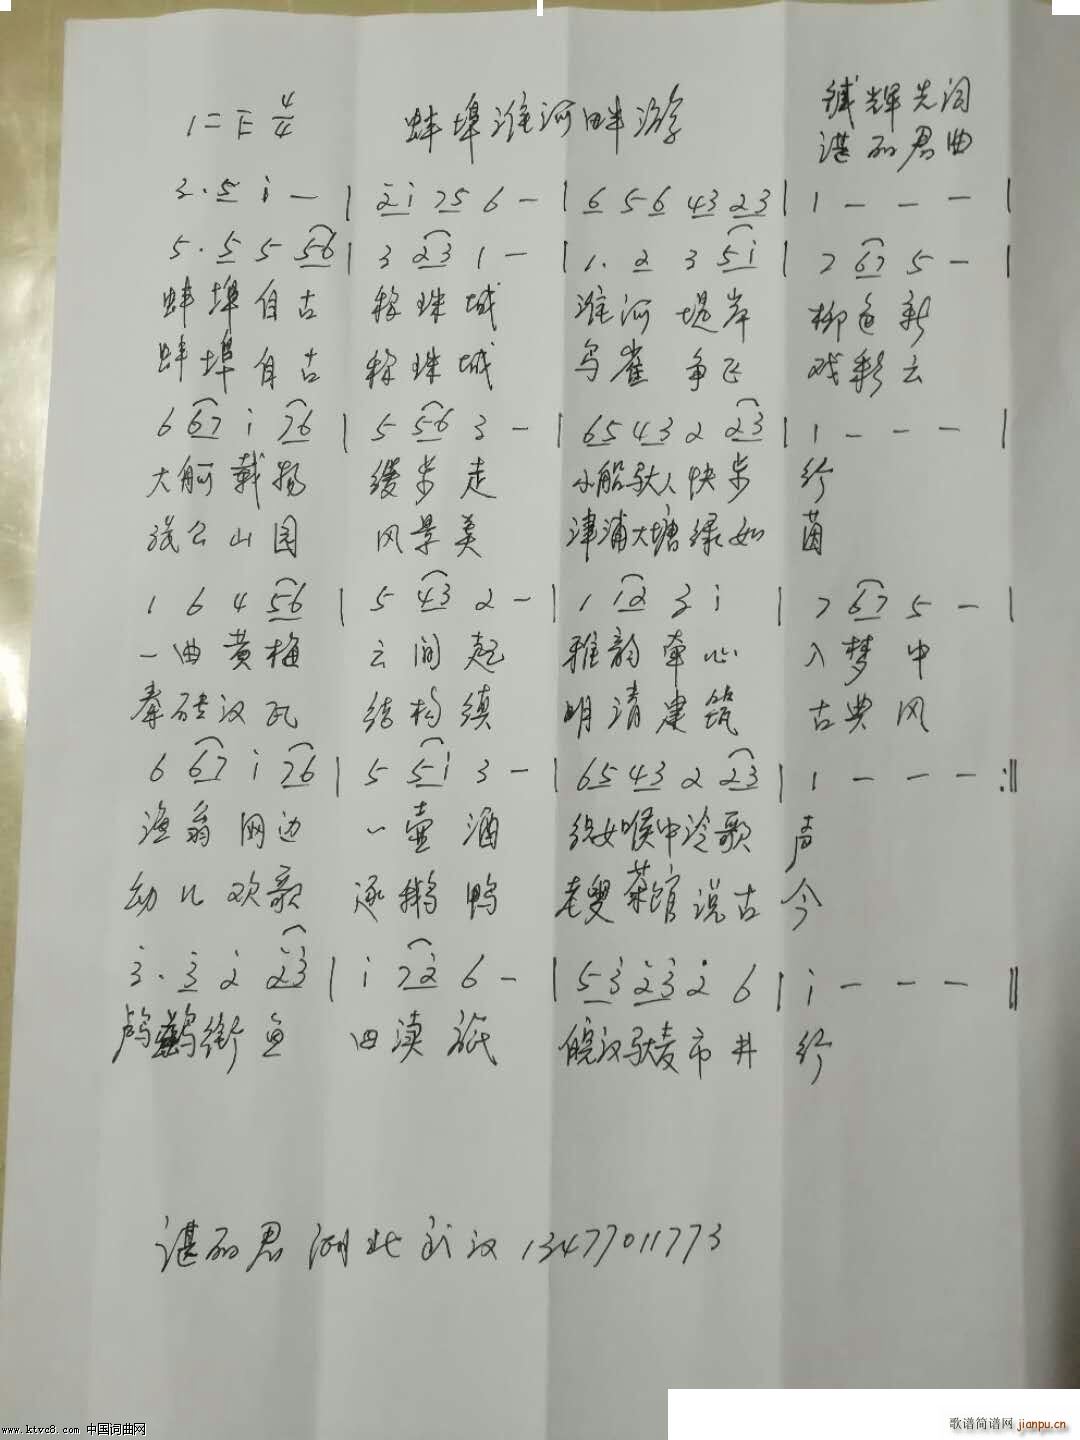 1=E 4/4 蚌埠淮河畔游 钺辉先词
谌丽君曲
3·5 i — | 2i 75 6 — | 6 5 6 43 23 | 1 — — — |
5·5 5 56 | 3 23 1 — | 1·2 3 5i | 7 67 5 — |
蚌埠自古 称珠城 淮河堤岸 柳色新
蚌埠自古 称珠城 鸟雀争飞 戏彩云
6 67 i 76 | 5 56 3 — | 65 43 2 23 | 1 — — — |
大舸载物 缓步走 小船驮人快步 行
张公山园 风景美 津浦大塘绿如 茵
1 6 4 56 | 5 43 2 — | 1 12 3 i | 7 67 5 — |
一曲黄梅 云间起 雅韵牵心 入梦中
秦砖汉瓦 结构缜 明清建筑 古典风
6 67 i 76 | 5 5i 3 — | 65 43 2 23 | 1 — — — :||
渔翁网边 一壶酒 喉中冷歌 声
幼儿欢歌 逐鹅鸭 老叟茶馆说古 今
3·3 2 23 | i 72 6 — | 53 23 2 6 | i — — — ||
鸬鹚衔鱼 四渎 皖汉驮麦市井 行
谌丽君 湖北武汉 13477011773
www.ktvc8.com 中国词曲网
歌谱简谱网 jianpu.cn